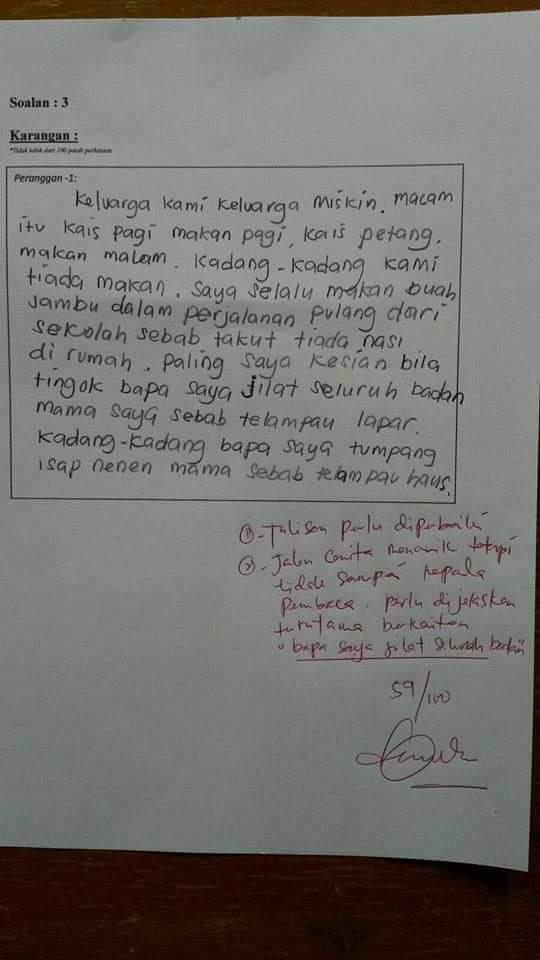 Soalan : 3
Karangan :
*Tidak lebih dari 100 patah perkataan
Peranggan -1:
Keluarga kami keluarga miskin. macam
itu kais pagi makan pagi, kais petang.
makan malam. Kadang-kadang kami
tiada makan. saya selalu makan buah
jambu dalam perjalanan pulang dari
sekolah sebab takut tiada nasi
di rumah. paling saya kesian bila
tingok bapa saya jilat seluruh badan
mama saya sebab telampau lapar.
Kadang-kadang bapa saya tumpang
isap nenen mama sebab telampau haus.
① - Tulisan perlu diperbaiki
② - Jalan cerita menarik tetapi
tidak sampai kepada
pembaca. perlu dijelaskan
terutama berkaitan
" bapa saya jilat seluruh badan
59/100